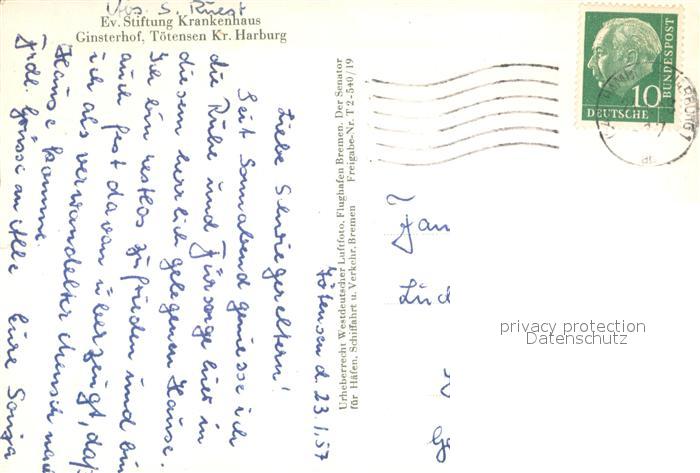 Abs. S. Ruegt
Ev. Stiftung Krankenhaus
Ginsterhof, Tötensen Kr. Harburg
Tötensen d. 23.1.57
Liebe Schwiegereltern!
Seit Sonnabend geniesse ich
die Ruhe und Fürsorge hier in
diesem herrlich gelegenen Hause.
Ich bin restlos zufrieden und bin
auch fest davon überzeugt, daß
ich als verwandelter Mensch nach
Hause komme.
Frdl. Grüsse an Alle Eure Sonja
Urheberrecht Westdeutscher Luftfoto, Flughafen Bremen. Der Senator
für Häfen, Schiffahrt u. Verkehr, Bremen Freigabe-Nr. T 2 - 540/19
10
DEUTSCHE
BUNDESPOST
Fam
Lüd
privacy protection
Datenschutz